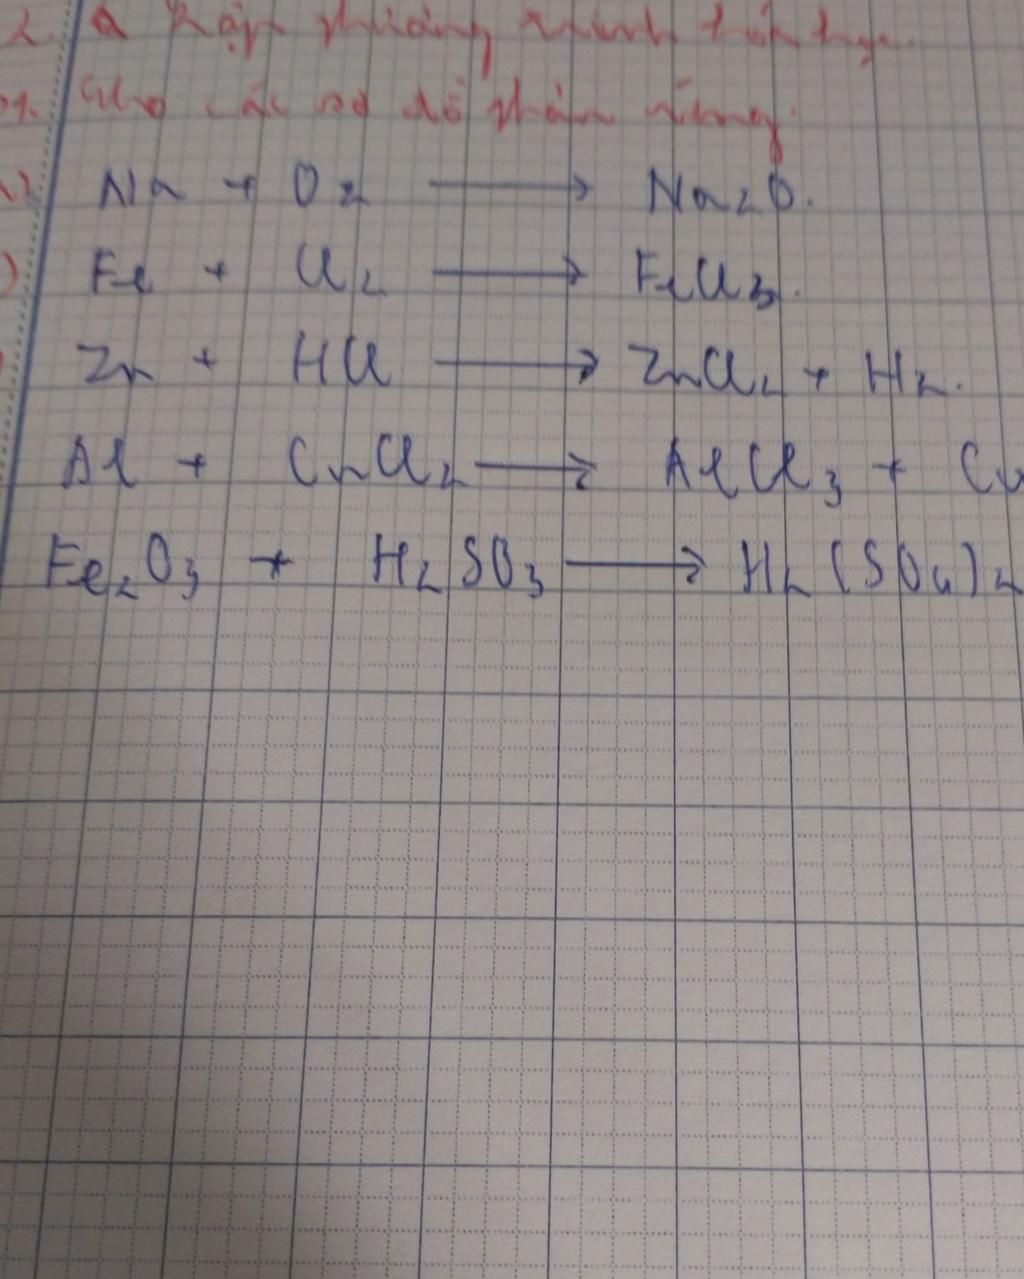 2. a Lập phương trình hóa học.
Cho các sơ đồ phản ứng.
Na + O2 → Na2O.
Fe + Cl2 → FeCl3.
Zn + HCl → ZnCl2 + H2.
Al + CuCl2 → AlCl3 + Cu
Fe2O3 + H2SO3 → H2(SO4)2